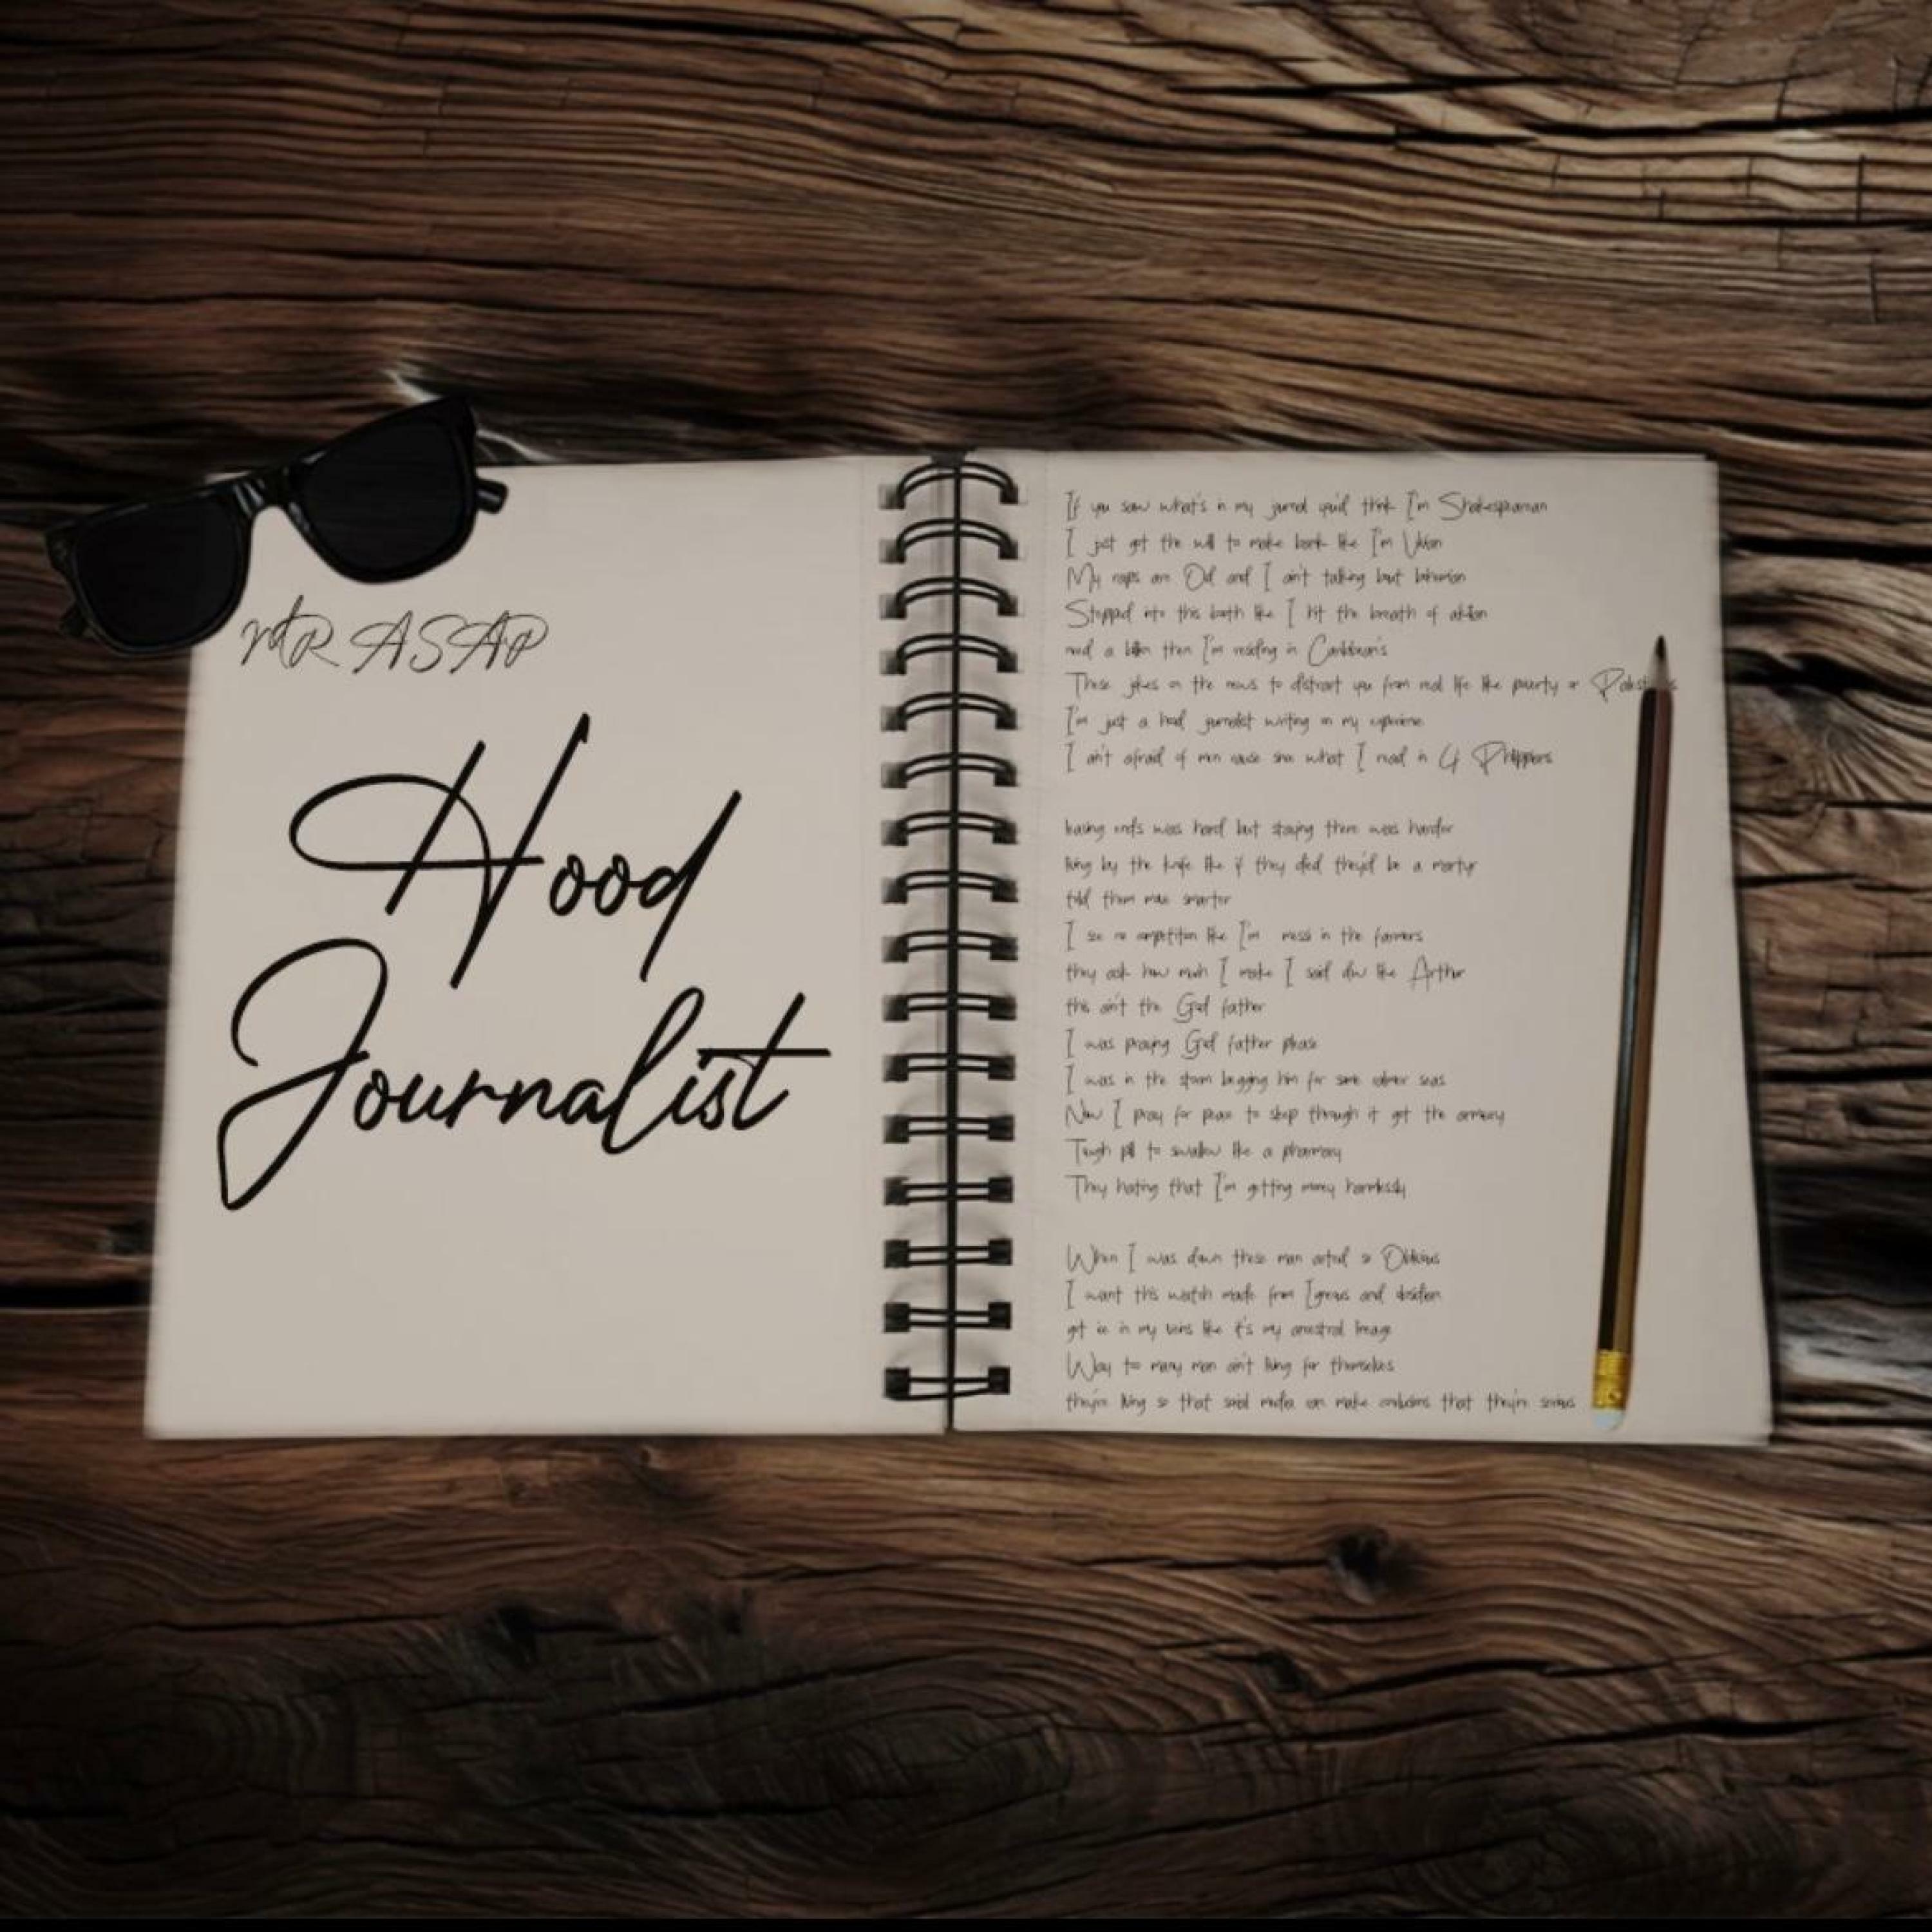 MR ASAP
Hood
Journalist
If you saw what's in my journal you'd think I'm Shakespearean
I just got the will to make bank like I'm
My raps are Old and I ain't talking bout
Stepped into this booth like I hit the breath of
need a then I'm residing in Caribbean's
These jokes on the news to distract you from real life like the poverty in
I'm just a hood journalist writing on my experience
I ain't afraid of men cause since what I read in 4 Philippians
leaving ends was hard but staying there was harder
living by the knife like if they died they'd be a martyr
told them smarter
I see no competition like I'm messi in the farmers
they ask how much I make I said like Arthur
this ain't the God father
I was praying God father please
I was in the storm begging him for some calmer seas
Now I pray for peace to step through it got the armory
Tough pill to swallow like a pharmacy
They hating that I'm getting money harmlessly
When I was down these man acted so Oblivious
I want this watch made from Igneous and obsidian
got ice in my veins like it's my ancestral lineage
Way to many men ain't living for themselves
they're living so that social media can make conclusions that they're serious